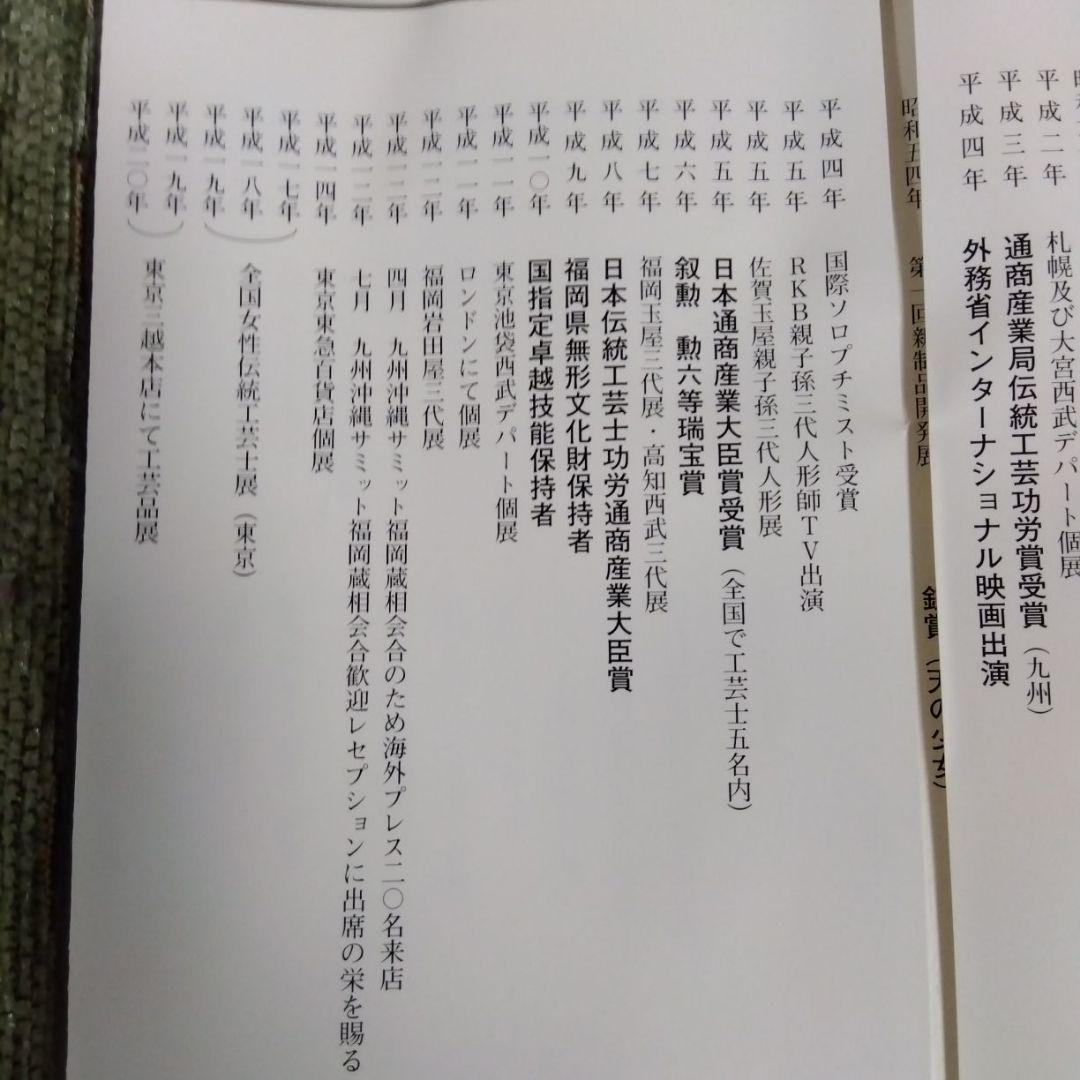 平成二年 札幌及び大宮西武デパート個展
平成三年 通商産業局伝統工芸功労賞受賞（九州）
平成四年 外務省インターナショナル映画出演
昭和五四年 第一回
平成四年 国際ソロプチミスト受賞
平成五年 RKB親子孫三代人形師TV出演
平成五年 佐賀玉屋親子孫三代人形展
平成五年 日本通商産業大臣賞受賞（全国で工芸士五名内）
平成六年 叙勲 勲六等瑞宝賞
平成七年 福岡玉屋三代展・高知西武三代展
平成八年 日本伝統工芸士功労通商産業大臣賞
平成九年 福岡県無形文化財保持者
平成一〇年 国指定卓越技能保持者
平成一一年 東京池袋西武デパート個展
平成一一年 ロンドンにて個展
平成一二年 福岡岩田屋三代展
平成一二年 四月 九州沖縄サミット福岡蔵相会合のため海外プレス二〇名来店
平成一二年 七月 九州沖縄サミット福岡蔵相会合歓迎レセプションに出席の栄を賜る
平成一四年 東京東急百貨店個展
平成一七年
平成一八年 全国女性伝統工芸士展（東京）
平成一九年
平成一九年
平成二〇年 東京三越本店にて工芸品展